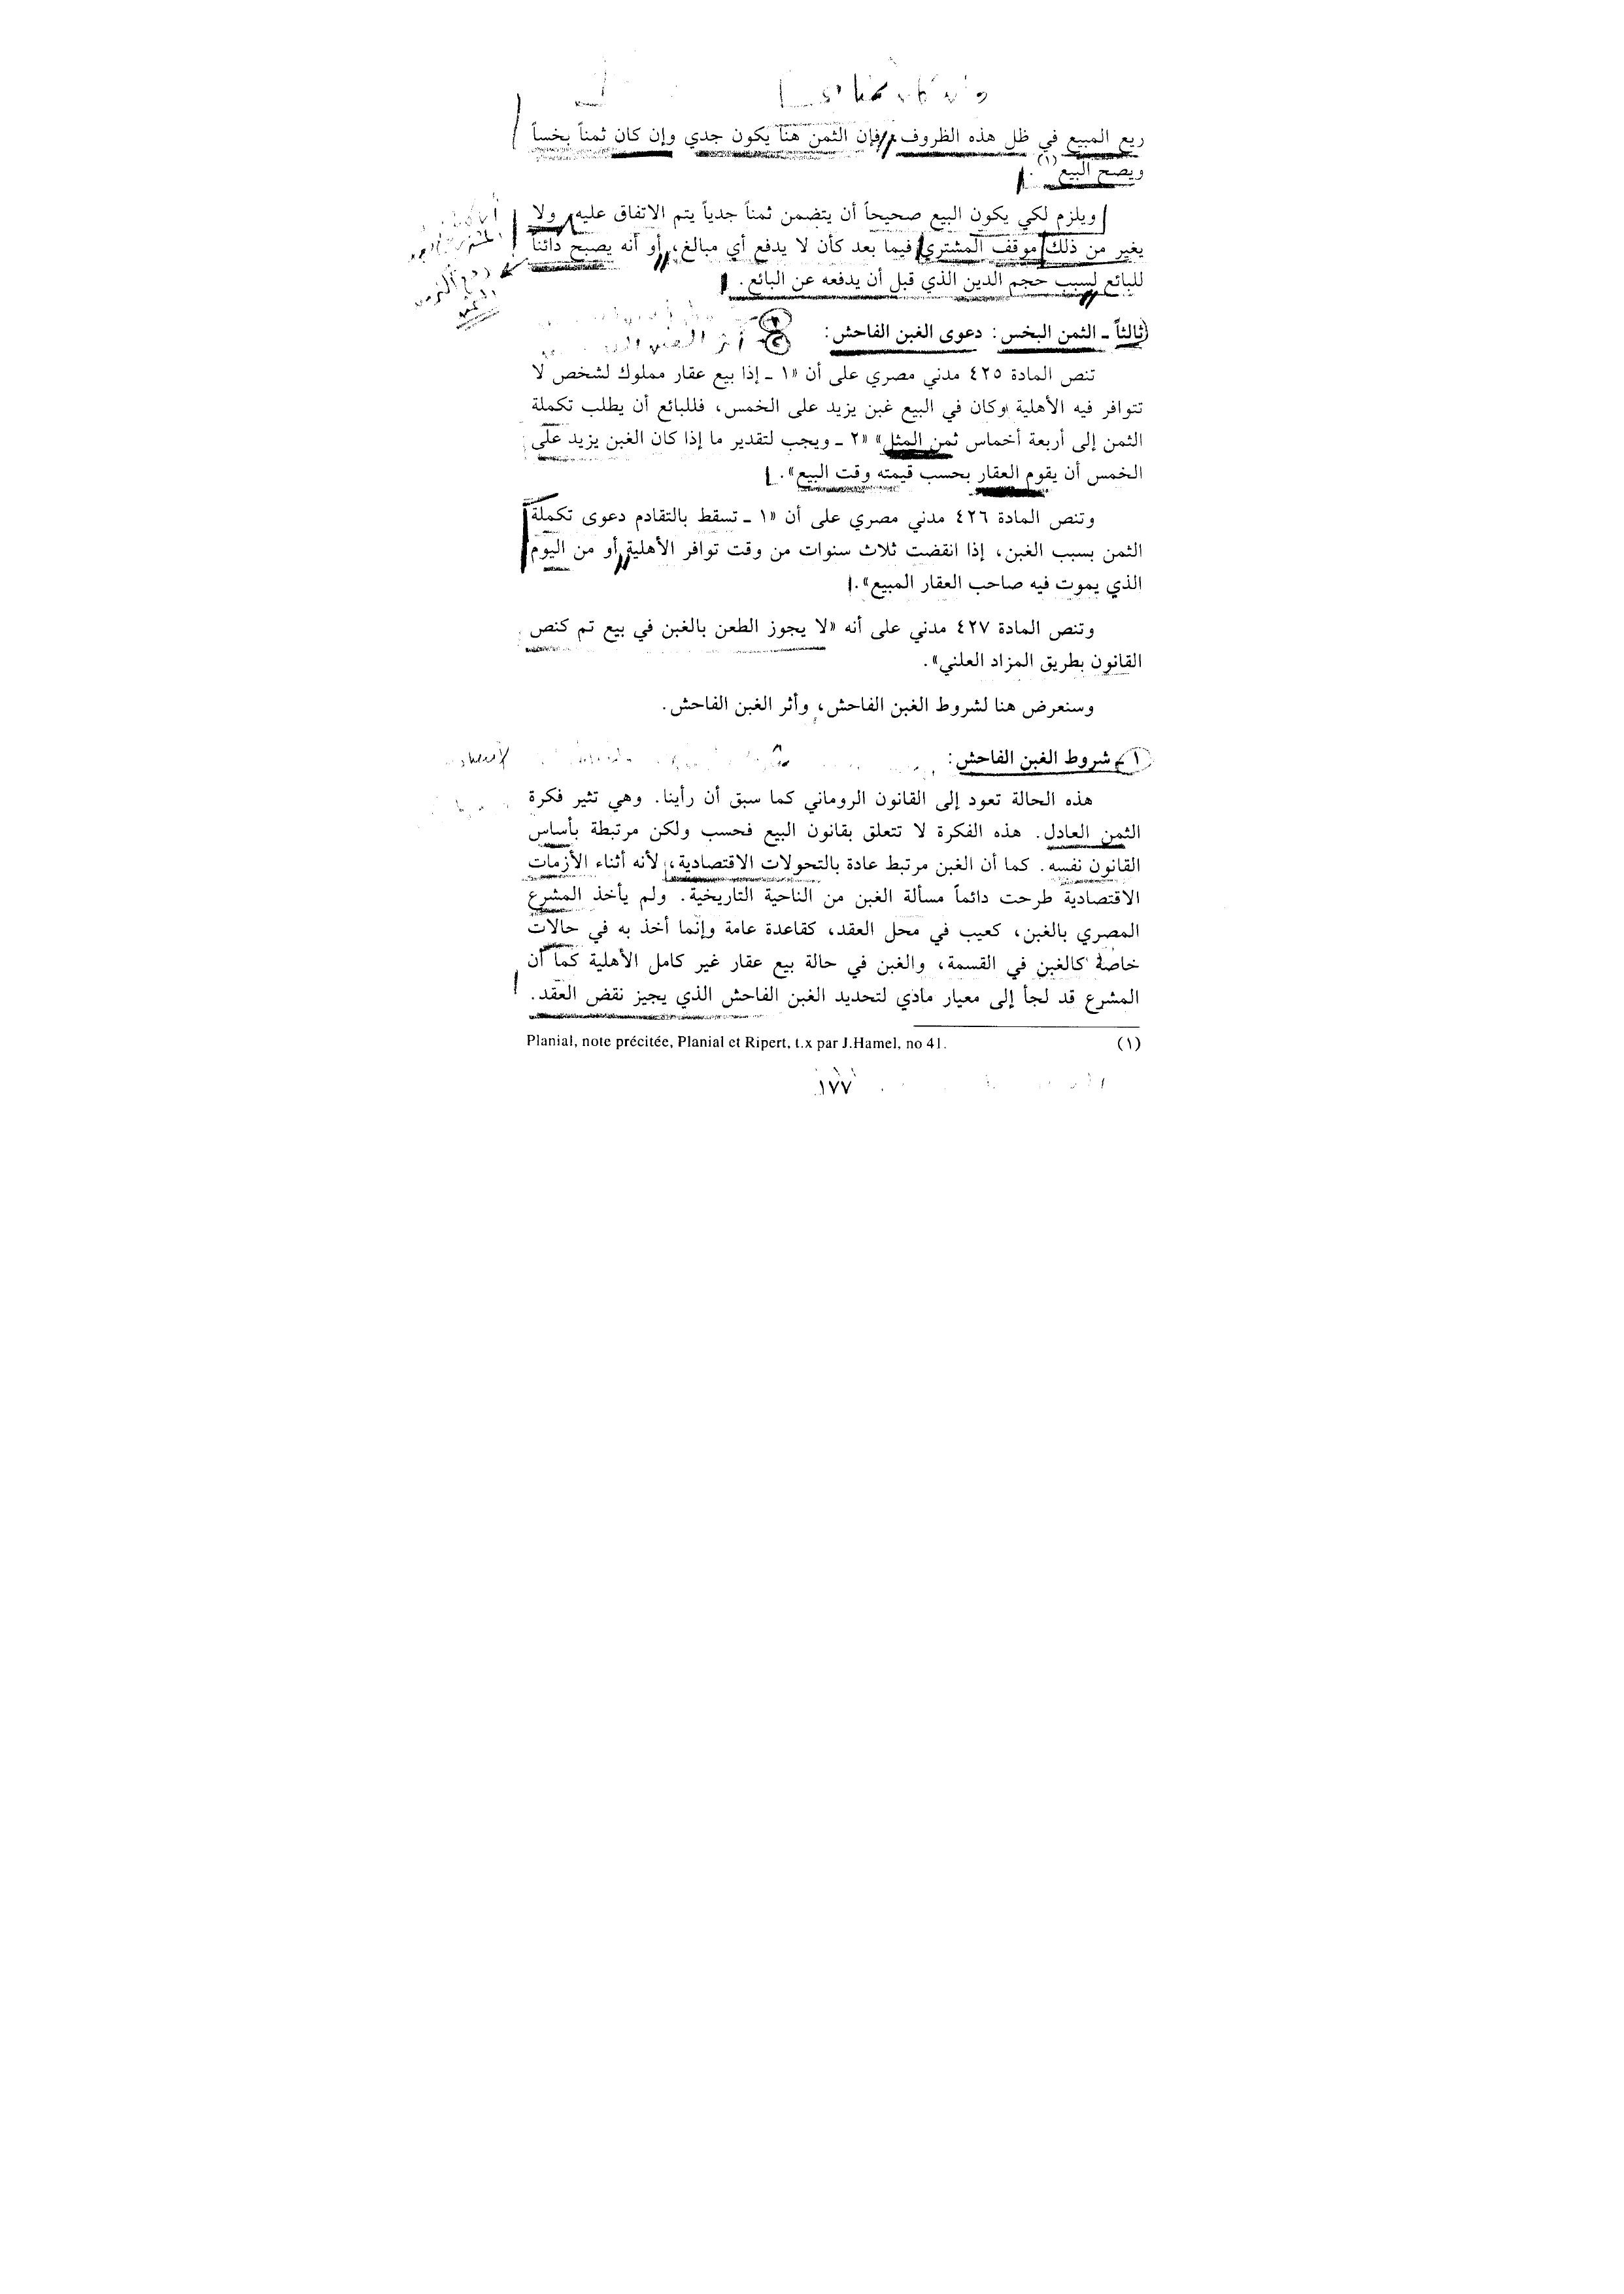 ريع المبيع في ظل هذه الظروف، فإن الثمن هنا يكون جدي وإن كان ثمناً بخساً
ويصح البيع (١).
ويلزم لكي يكون البيع صحيحاً أن يتضمن ثمناً جدياً يتم الاتفاق عليه، ولا
يغير من ذلك موقف المشتري فيما بعد كأن لا يدفع أي مبالغ، أو أنه يصبح دائناً
للبائع لسبب حجم الدين الذي قبل أن يدفعه عن البائع.
ثالثاً ـ الثمن البخس: دعوى الغبن الفاحش:
تنص المادة ٤٢٥ مدني مصري على أن «١ ـ إذا بيع عقار مملوك لشخص لا
تتوافر فيه الأهلية وكان في البيع غبن يزيد على الخمس، فللبائع أن يطلب تكملة
الثمن إلى أربعة أخماس ثمن المثل» «٢ ـ ويجب لتقدير ما إذا كان الغبن يزيد على
الخمس أن يقوم العقار بحسب قيمته وقت البيع».
وتنص المادة ٤٢٦ مدني مصري على أن «١ ـ تسقط بالتقادم دعوى تكملة
الثمن بسبب الغبن، إذا انقضت ثلاث سنوات من وقت توافر الأهلية أو من اليوم
الذي يموت فيه صاحب العقار المبيع».
وتنص المادة ٤٢٧ مدني على أنه «لا يجوز الطعن بالغبن في بيع تم كنص
القانون بطريق المزاد العلني».
وسنعرض هنا لشروط الغبن الفاحش، وأثر الغبن الفاحش.
١ ـ شروط الغبن الفاحش:
هذه الحالة تعود إلى القانون الروماني كما سبق أن رأينا. وهي تثير فكرة
الثمن العادل. هذه الفكرة لا تتعلق بقانون البيع فحسب ولكن مرتبطة بأساس
القانون نفسه. كما أن الغبن مرتبط عادة بالتحولات الاقتصادية، لأنه أثناء الأزمات
الاقتصادية طرحت دائماً مسألة الغبن من الناحية التاريخية. ولم يأخذ المشرع
المصري بالغبن، كعيب في محل العقد، كقاعدة عامة وإنما أخذ به في حالات
خاصة كالغبن في القسمة، والغبن في حالة بيع عقار غير كامل الأهلية كما أن
المشرع قد لجأ إلى معيار مادي لتحديد الغبن الفاحش الذي يجيز نقض العقد.
(١) Planial, note précitée, Planial et Ripert, t.x par J.Hamel, no 41.
١٧٧